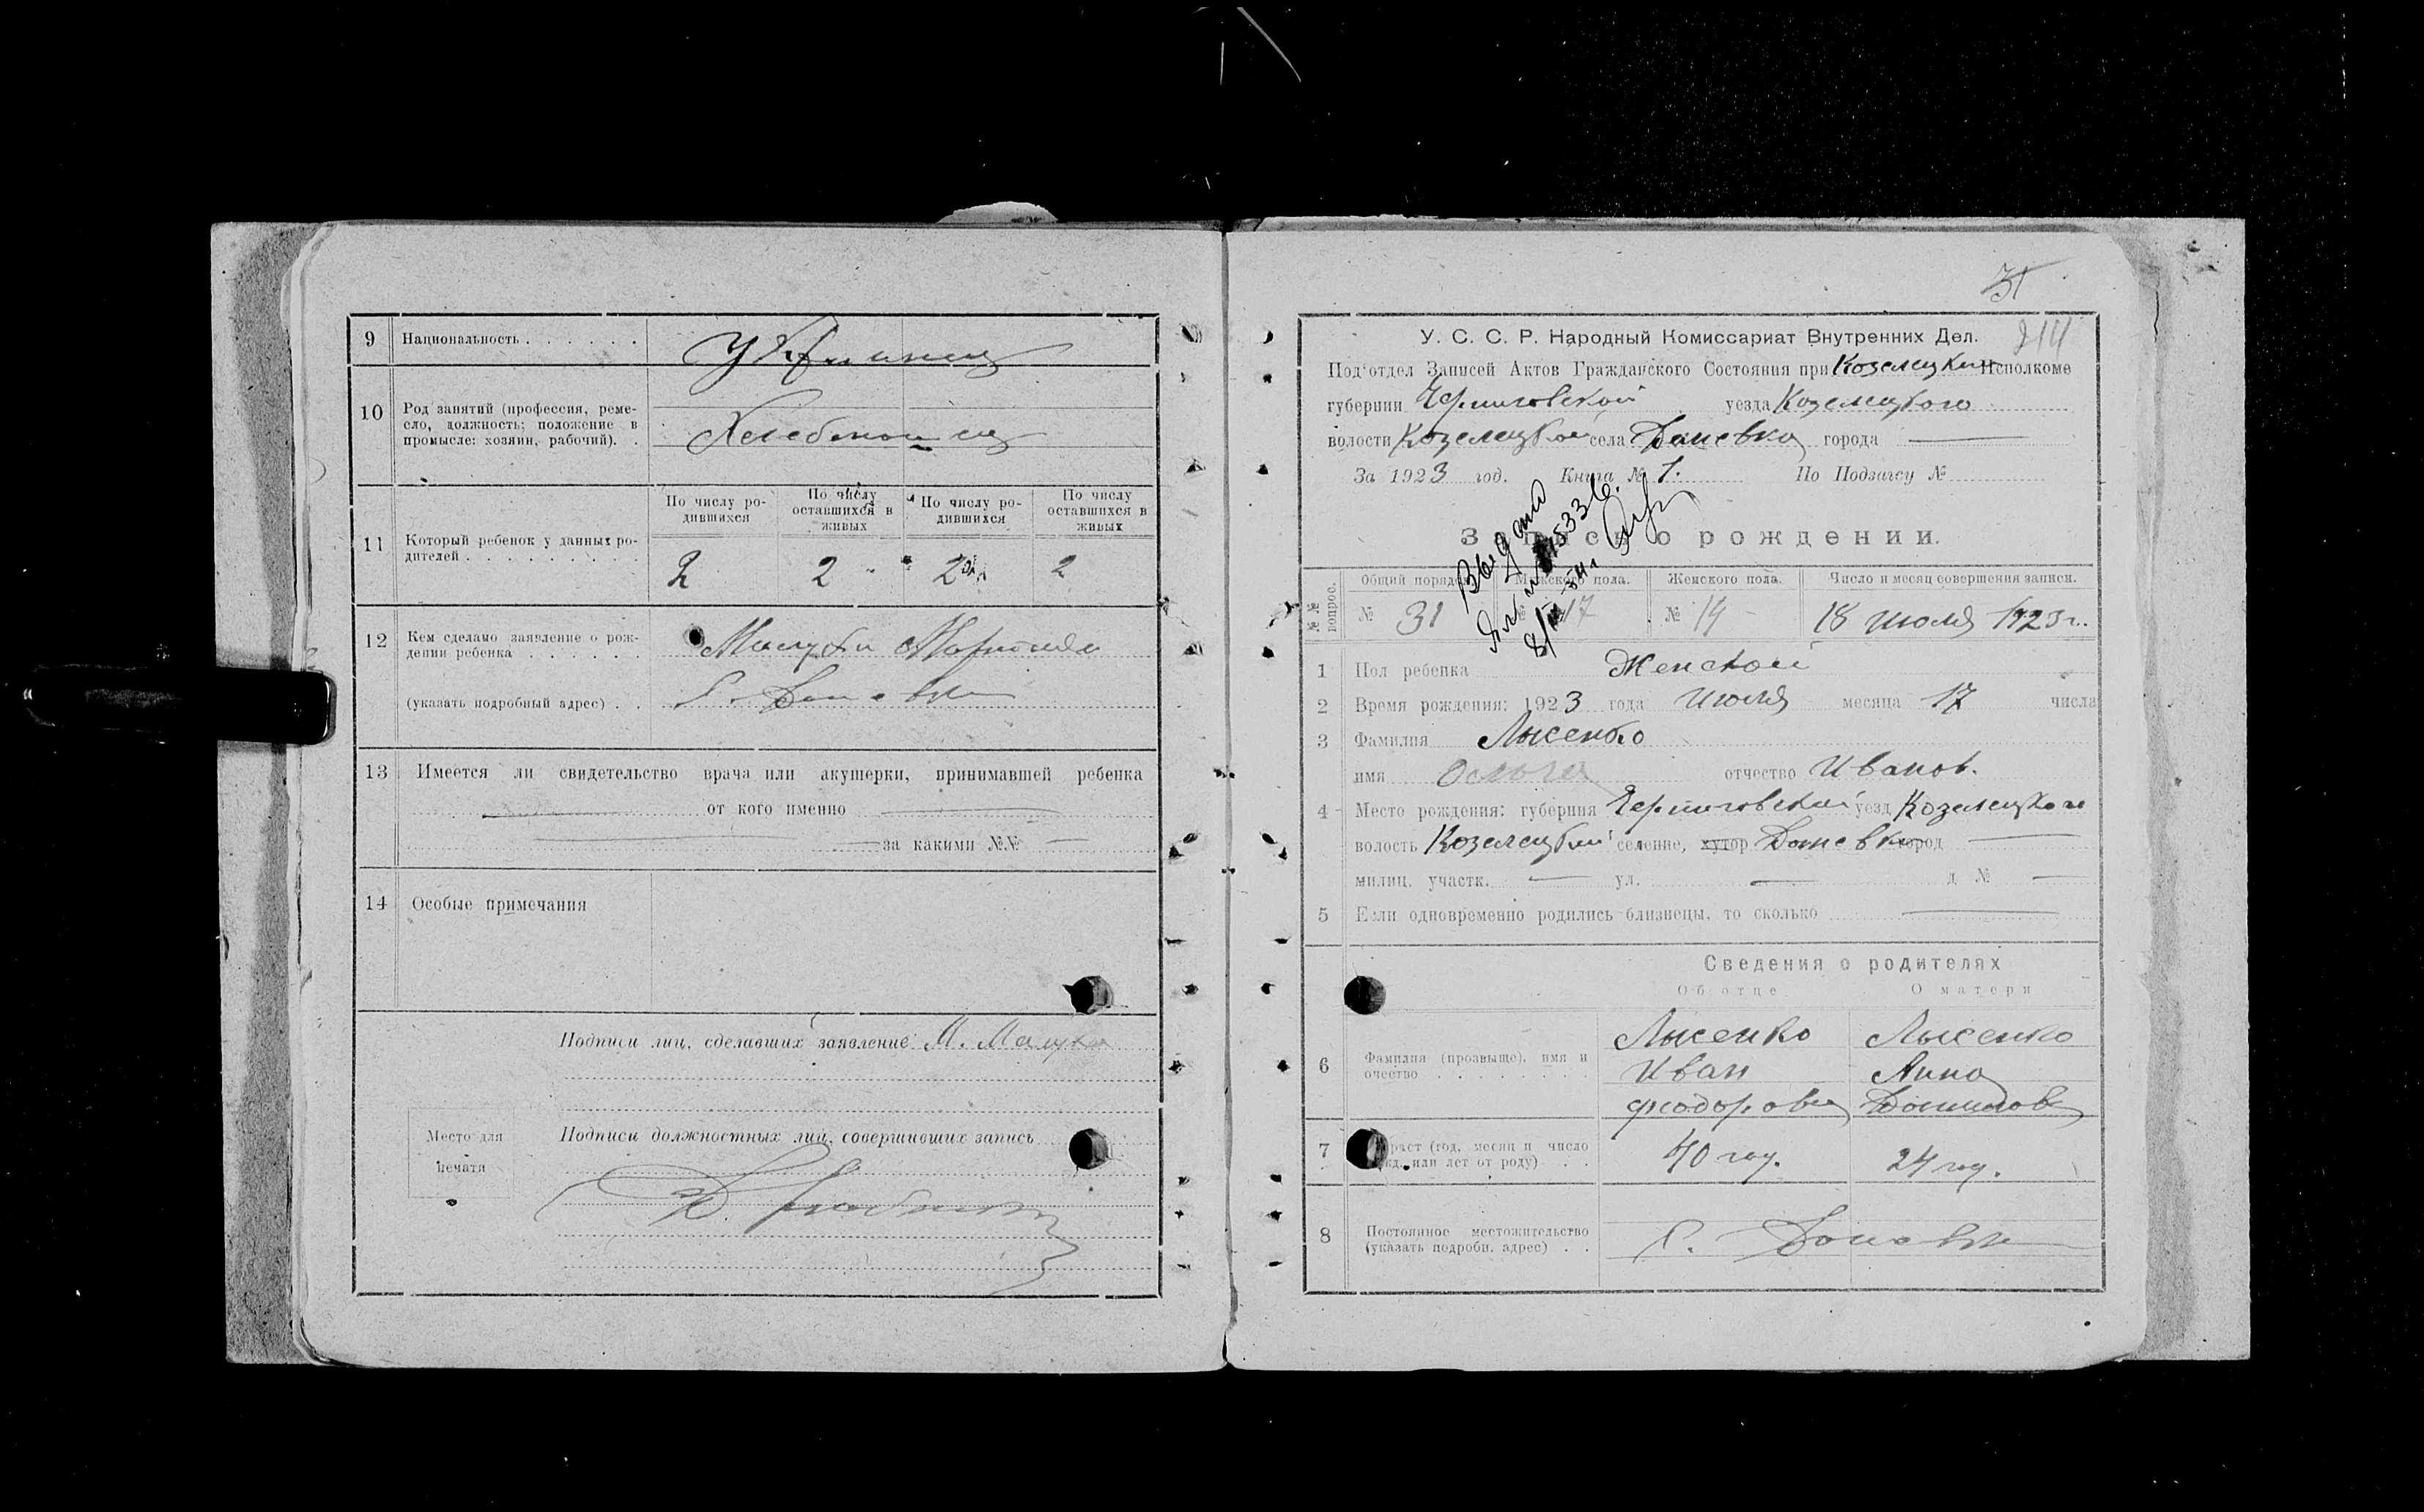 9 Национальность . . . . . . Украинец
10 Род занятий (профессия, реме-
сло, должность; положение в
промысле: хозяин, рабочий). .
Хлебопашец
11 Который ребенок у данных ро-
дителей . . . . . . . . .
По числу ро-
дившихся
По числу
оставшихся в
живых
По числу ро-
дившихся
По числу
оставшихся в
живых
2 2 2 2
12 Кем сделано заявление о рож-
дении ребенка . . . . . .
(указать подробный адрес) . .
с. Даневка
13 Имеется ли свидетельство врача или акушерки, принимавшей ребенка
от кого именно
за какими №№
14 Особые примечания
Подписи лиц, сделавших заявление М.
Подписи должностных лиц, совершивших запись
Место для
печати
31
214
У. С. С. Р. Народный Комиссариат Внутренних Дел.
Под'отдел Записей Актов Гражданского Состояния при Козелецком Исполкоме
губернии Черниговской уезда Козелецкого
волости Козелецкой села Даневка города
За 1923 год. Книга № 1. По Подзагсу №
Запись о рождении.
Выдано
№№ вопрос.
Общий порядок Мужского пола. Женского пола. Число и месяц совершения записи.
№ 31 № 17 № 14 18 июля 1923 г.
1 Пол ребенка Женской
2 Время рождения: 1923 года Июля месяца 17 числа
3 Фамилия Лысенко
имя Ольга отчество Иванов.
4 Место рождения: губерния Черниговской уезд Козелецкого
волость Козелецкой селение, хутор Даневка город
милиц. участк. ул. д №
5 Если одновременно родились близнецы, то сколько
Сведения о родителях
Об отце О матери
6 Фамилия (прозвыще), имя и
очество . . . . . . . .
Лысенко Лысенко
Иван Анна
Феодорович Данилов
7 (год, месяц и число
или лет от роду) . .
40 год. 24 год.
8 Постоянное местожительство
(указать подробн. адрес) . .
с. Даневка